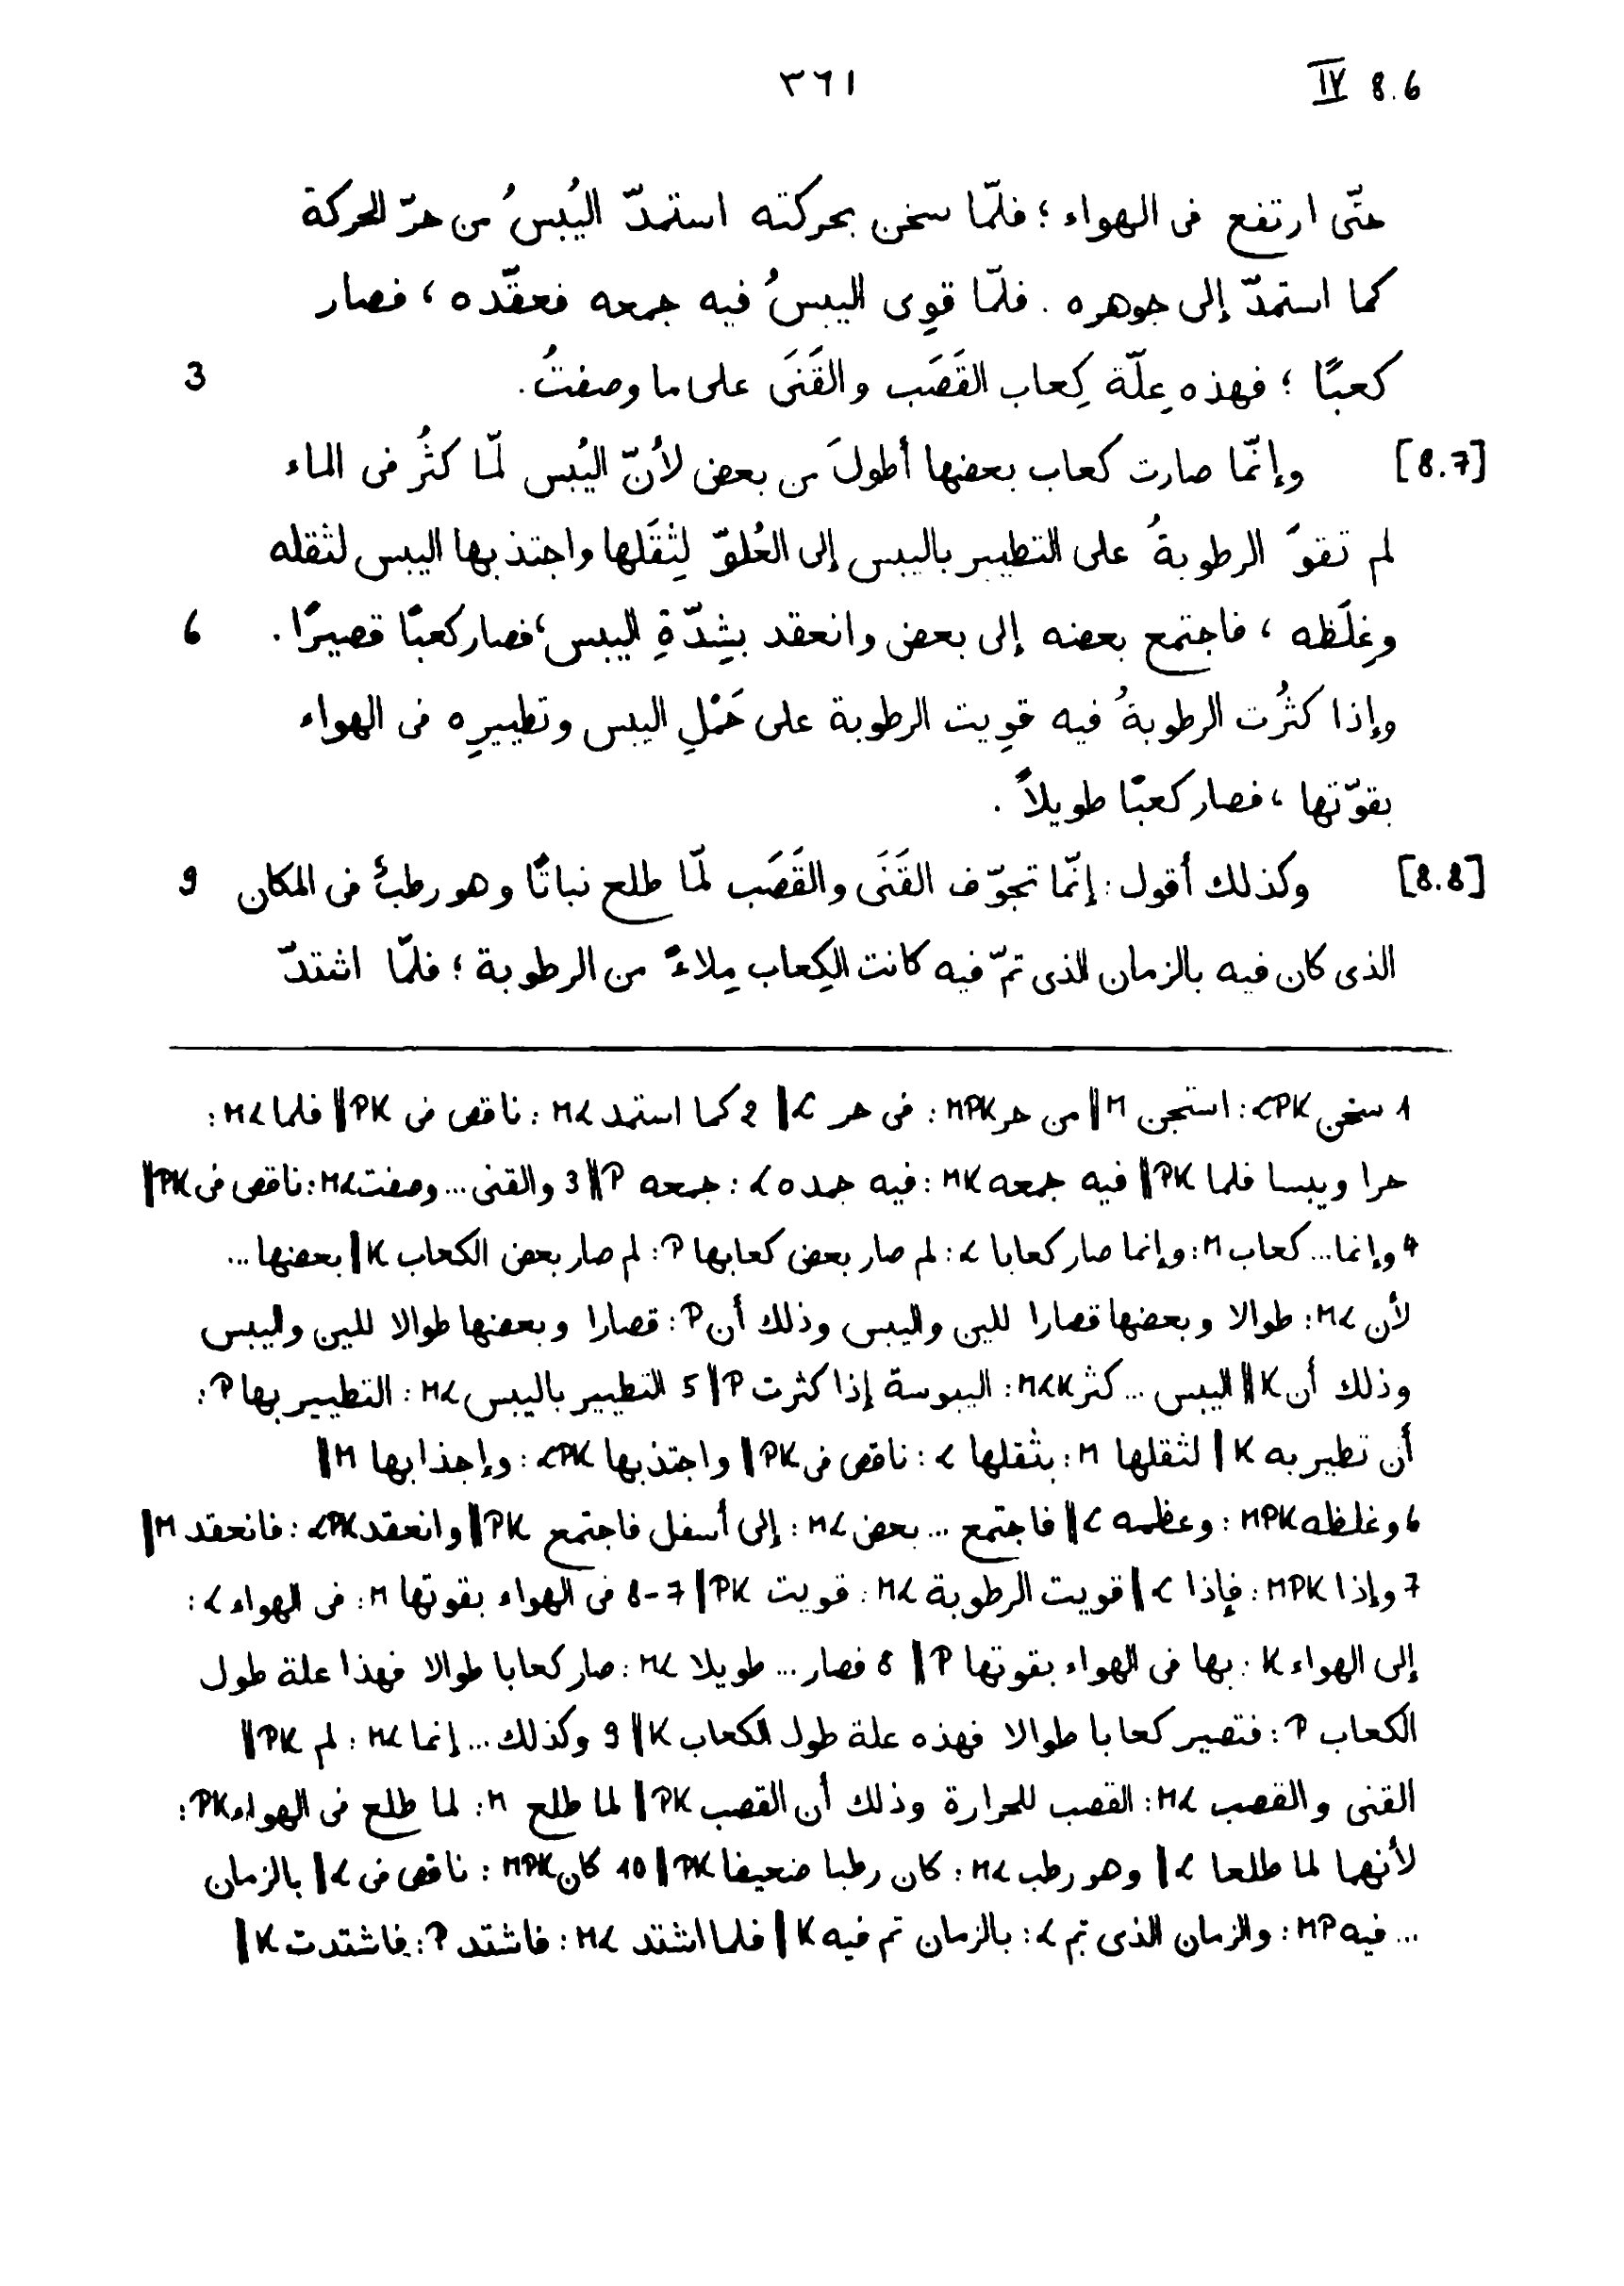 IV 8.6 ٣٦١
حتّى ارتفع فى الهواء ؛ فلمّا سخن بحركته استمدّ اليُبسُ من حرّ الحركة
كما استمدّ إلى جوهره . فلمّا قوِى اليبسُ فيه جمعه فعقّده ، فصار
كعبًا ؛ فهذه عِلّة كِعاب القَصَب والقَنَى على ما وصفتُ . 3
[8.7] وإنّما صارت كعاب بعضها أطولَ من بعض لأنّ اليُبس لمّا كثُر فى الماء
لم تقوَ الرطوبةُ على التطيير باليبس إلى العُلوّ لِثِقَلها واجتذبها اليبس لثقله
وغِلَظه ، فاجتمع بعضه إلى بعض وانعقد بشِدّةِ اليبس ، فصار كعبًا قصيرًا . 6
وإذا كثُرت الرطوبةُ فيه قوِيت الرطوبة على حَمْلِ اليبس وتطييرِه فى الهواء
بقوّتها ، فصار كعبًا طويلاً .
[8.8] وكذلك أقول : إنّما تجوّف القَنَى والقَصَب لمّا طلع نباتًا وهو رطبٌ فى المكان 9
الذى كان فيه بالزمان الذى تمّ فيه كانت الكِعاب مِلاءً من الرطوبة ؛ فلمّا اشتدّ
1 سخن LPK : استجن M || من حر MPK : فى حر L || 2 كما استمد ML : ناقص فى PK || فلما ML :
حرا ويبسا فلما PK || فيه جمعه MK : فيه جمده L : جمعه P || 3 والقنى ... وصفت ML : ناقص فى PK ||
4 وإنما ... كعاب M : وإنما صار كعابا L : لم صار بعض كعابها P : لم صار بعض الكعاب K || بعضها ...
لأن ML : طوالا وبعضها قصارا للين واليبس وذلك أن P : قصارا وبعضها طوالا للين واليبس
وذلك أن K || اليبس ... كثر MLK : اليبوسة إذا كثرت P || 5 التطيير باليبس ML : التطيير بها P :
أن تطير به K || لثقلها M : بثقلها L : ناقص فى PK || واجتذبها LPK : وإجذابها M ||
6 وغلظه MPK : وعظمه L || فاجتمع ... بعض ML : إلى أسفل فاجتمع PK || وانعقد LPK : فانعقد M ||
7 وإذا MPK : فإذا L || قويت الرطوبة ML : قويت PK || 7-8 فى الهواء بقوتها M : فى الهواء L :
إلى الهواء K : بها فى الهواء بقوتها P || 8 فصار ... طويلا ML : صار كعابا طوالا فهذا علة طول
الكعاب P : فتصير كعابا طوالا فهذه علة طول الكعاب K || 9 وكذلك ... إنما ML : لم PK ||
القنى والقصب ML : القصب للحرارة وذلك أن القصب PK || لما طلع M : لما طلع فى الهواء PK :
لأنهما لما طلعا L || وهو رطب ML : كان رطبا ضعيفا PK || 10 كان MPK : ناقص فى L || بالزمان
... فيه MP : والزمان الذى تم L : بالزمان تم فيه K || فلما اشتد ML : فاشتد P : فاشتدت K ||